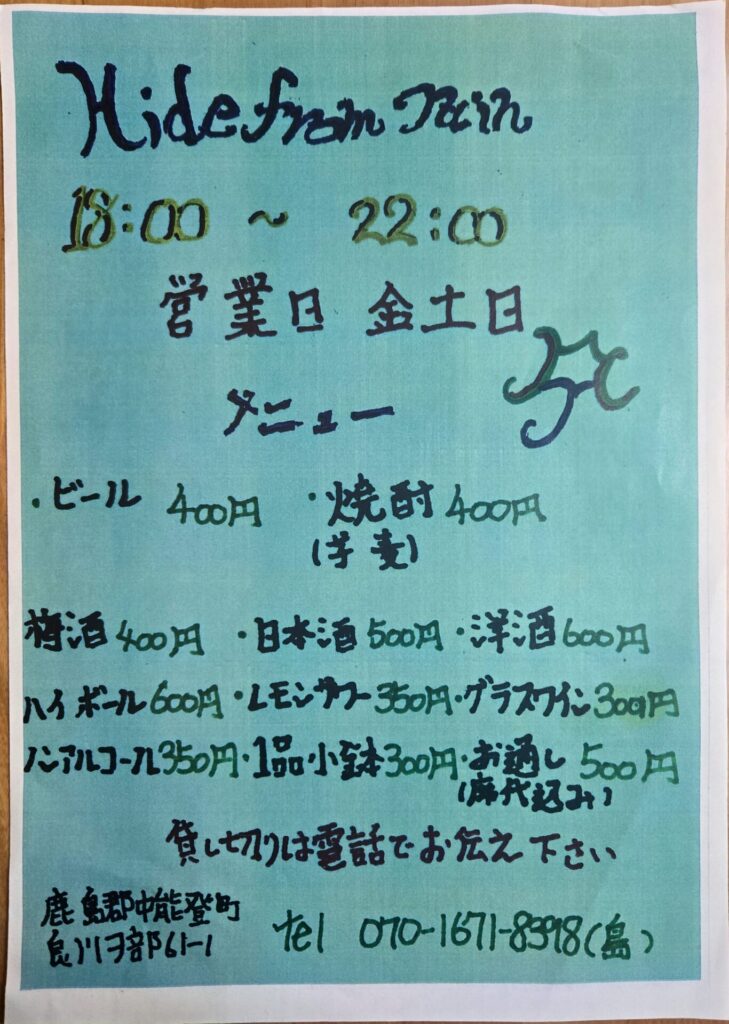 Hide from rain
18:00 ~ 22:00
営業日 金土日
メニュー
・ビール 400円 ・焼酎 400円
(芋 麦)
梅酒 400円 ・日本酒 500円・洋酒 600円
ハイボール 600円・レモンサワー 350円・グラスワイン 300円
ノンアルコール 350円・1品小鉢 300円・お通し 500円
(席代込み)
貸し切りは電話でお伝え下さい
鹿島郡中能登町
良川ヲ部61-1
tel 070-1671-8398(島)